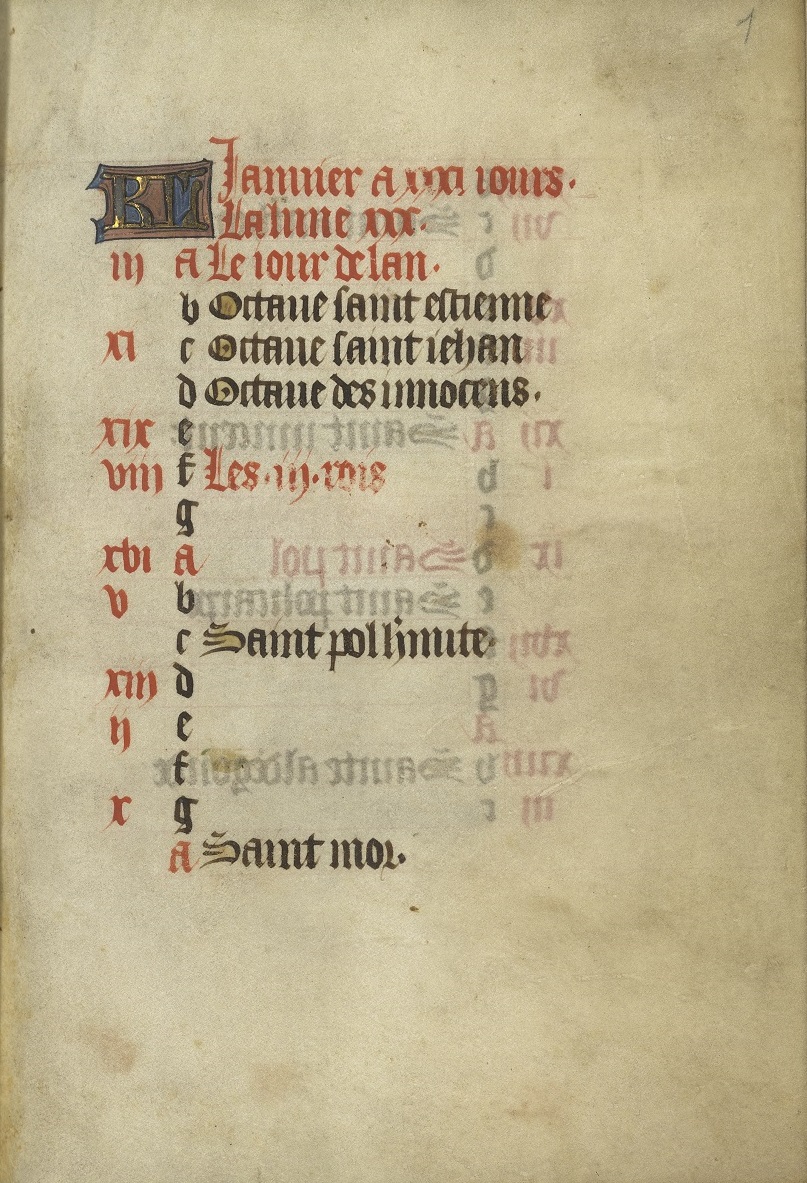 1
KL Januier a xxxi iours.
La lune xxx.
iij a Le iour de lan.
b Octaue saint estienne
xi c Octaue saint iehan
d Octaue des innocens.
xix e
viij f Les .iij. rois
g
xvi a
v b
c Saint pol limite.
xiij d
ij e
f
x g
a Saint mor.